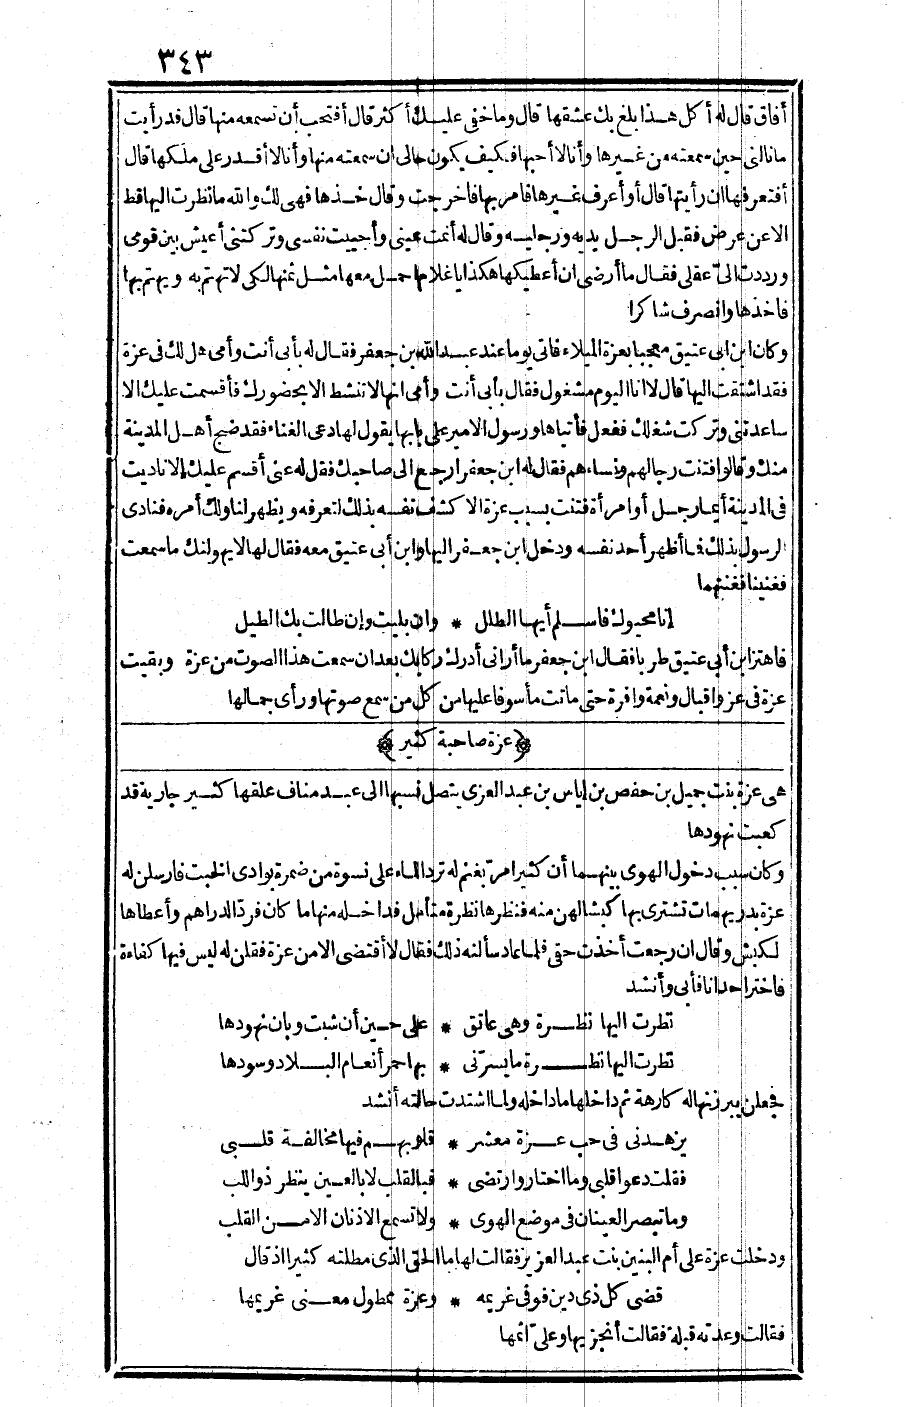 ٣٤٣
أفاق قال له أكل هذا بلغ بك عشقها قال وما خفى عليك أكثر قال أفتحب أن تسمعه منها قال قد رأيت
ما نالنى حين سمعته من غيرها وأنا لا أحبها فكيف يكون حالى ان سمعته منها وأنا لا أقدر على ملكها قال
أفتعرفها ان رأيتها قال أو أعرف غيرها فأمر بها فاخرجت وقال خذها فهى لك والله ما نظرت اليها قط
الا عن عرض فقبل الرجل يديه ورجليه وقال له أنمت عينى وأحييت نفسى وتركتنى أعيش بين قومى
ورددت الىّ عقلى فقال ما أرضى ان أعطيكها هكذا يا غلام احمل معها مثل ثمنها لكى لا تهتم به ويهتم بها
فاخذها وانصرف شاكرا
وكان ابن ابى عتيق معجبا بعزة الميلاء فاتى يوما عند عبد الله بن جعفر فقال له بأبى أنت وأمى هل لك فى عزة
فقد اشتقت اليها قال لا انا اليوم مشغول فقال بأبى أنت وأمى انها لا تنشط الا بحضورك فأقسمت عليك الا
ساعدتنى وتركت شغلك ففعل فأتياها ورسول الامير على بابها يقول لها دعى الغناء فقد ضج أهل المدينة
منك وقالوا فتنت رجالهم ونساءهم فقال له ابن جعفر ارجع الى صاحبك فقل له عنى أقسم عليك الا ناديت
فى المدينة أيما رجل أو امرأة فتنت بسبب عزة الا كشف نفسه بذلك لنعرفه ويظهر لنا ولك أمره فنادى
الرسول بذلك فما أظهر أحد نفسه ودخل ابن جعفر اليها وابن أبى عتيق معه فقال لها لا يهولنك ما سمعت
فغنينا فغنتهما
انا محيوك فاسلم أيها الطلل * وان بليت وإن طالت بك الطيل
فاهتز ابن أبى عتيق طربا فقال ابن جعفر ما أرانى أدرك ركابك بعد ان سمعت هذا الصوت من عزة وبقيت
عزة فى عز واقبال ونعمة وافرة حتى ماتت مأسوفا عليها من كل من سمع صوتها ورأى جمالها
﴿ عزة صاحبة كثير ﴾
هى عزة بنت جميل بن حفص بن إياس بن عبد العزى يتصل نسبها الى عبد مناف علقها كثير جارية قد
كعبت نهودها
وكان سبب دخول الهوى بينهما أن كثيرا مر بغنم له ترد الماء على نسوة من ضمرة بوادى الخبت فارسلن له
عزة بدريهمات تشترى بها كبشا لهن منه فنظرها نظرة متأمل فداخله منها ما كان فرد الدراهم وأعطاها
لكبش وقال ان رجعت أخذت حقى فلما عاد سألنه ذلك فقال لا أقتضى الا من عزة فقلن له ليس فيها كفاءة
فاختر احدانا فأبى وأنشد
نظرت اليها نظرة وهى عاتق * على حين أن شبت وبان نهودها
نظرت اليها نظرة ما يسرّنى * بها حمر أنعام البلاد وسودها
فجعلن يبرزنها له كارهة ثم داخلها ما داخله ولما اشتدت حالته أنشد
يزهدنى فى حب عزة معشر * قلوبهم فيها مخالفة قلبى
فقلت دعوا قلبى وما اختار وارتضى * فبالقلب لا بالعين ينظر ذو اللب
وما تبصر العينان فى موضع الهوى * ولا تسمع الاذنان الا من القلب
ودخلت عزة على أم البنين بنت عبد العزيز فقالت لها ما الحق الذى مطلته كثيرا اذ قال
قضى كل ذى دين فوفى غريمه * وعزة ممطول معنى غريمها
فقالت وعدته قبلة فقالت أنجزيها وعلىّ اثمها